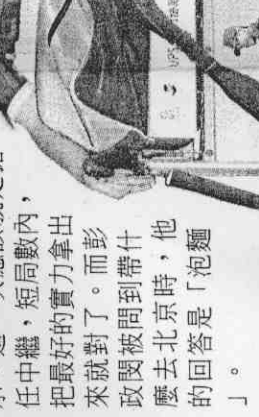 任中繼，短局數內，
把最好的實力拿出
來就對了。而彭
政閔被問到帶什
麼去北京時，他
的回答是「泡麵
」。
UPS